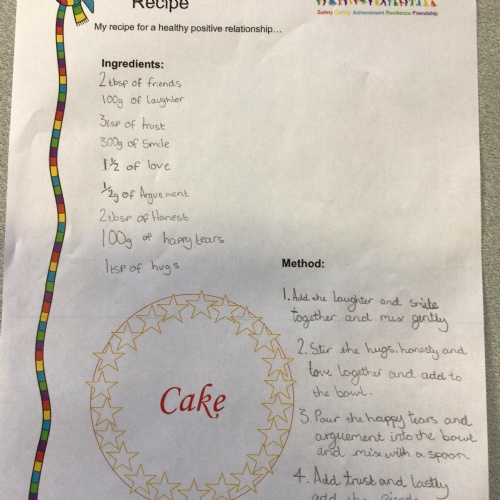 Recipe
Safety Caring Achievement Resilience Friendship
My recipe for a healthy positive relationship...
Ingredients:
2tbsp of friends
100g of laughter
3tsp of trust
300g of Smile
1½ of love
½g of Arguement
2tbsp of Honest
100g of happy tears
1tsp of hugs
Method:
1. Add the laughter and smile
together and mix gently
2. Stir the hugs, honesty and
love together and add to
the bowl.
3. Pour the happy tears and
arguement into the bowl
and mix with a spoon
4. Add trust and lastly
add the
Cake